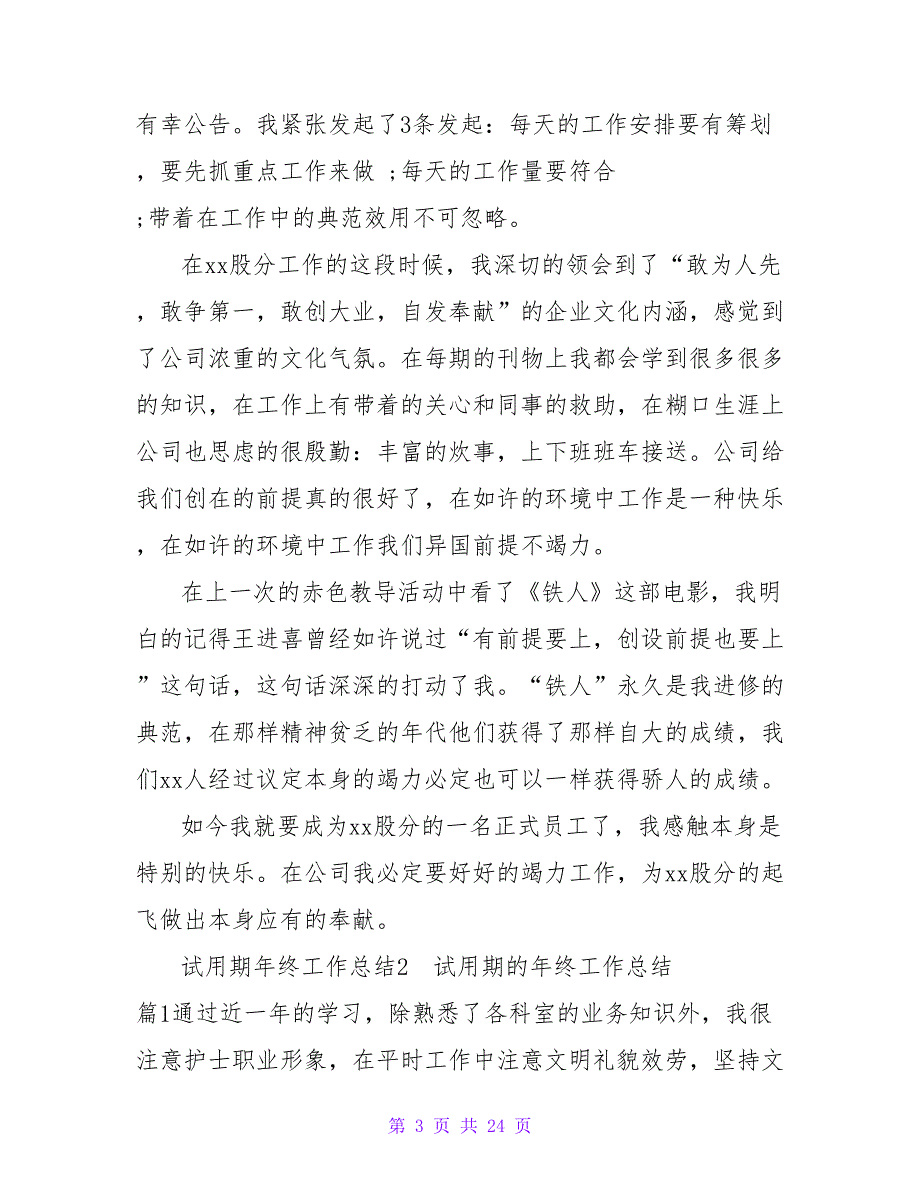 有幸公告。我紧张发起了3条发起：每天的工作安排要有筹划
，要先抓重点工作来做 ;每天的工作量要符合
;带着在工作中的典范效用不可忽略。
在xx股分工作的这段时候，我深切的领会到了“敢为人先
，敢争第一，敢创大业，自发奉献”的企业文化内涵，感觉到
了公司浓重的文化气氛。在每期的刊物上我都会学到很多很多
的知识，在工作上有带着的关心和同事的救助，在糊口生涯上
公司也思虑的很殷勤：丰富的炊事，上下班班车接送。公司给
我们创在的前提真的很好了，在如许的环境中工作是一种快乐
，在如许的环境中工作我们异国前提不竭力。
在上一次的赤色教导活动中看了《铁人》这部电影，我明
白的记得王进喜曾经如许说过“有前提要上，创设前提也要上
”这句话，这句话深深的打动了我。“铁人”永久是我进修的
典范，在那样精神贫乏的年代他们获得了那样自大的成绩，我
们xx人经过议定本身的竭力必定也可以一样获得骄人的成绩。
如今我就要成为xx股分的一名正式员工了，我感触本身是
特别的快乐。在公司我必定要好好的竭力工作，为xx股分的起
飞做出本身应有的奉献。
试用期年终工作总结2　试用期的年终工作总结
篇1通过近一年的学习，除熟悉了各科室的业务知识外，我很
注意护士职业形象，在平时工作中注意文明礼貌效劳，坚持文
第 3 页 共 24 页